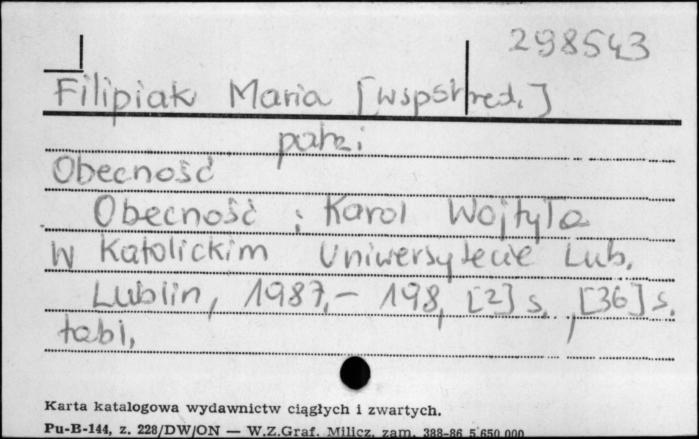 298543
Filipiak Maria [wspłred.]
patrz:
Obecność
Obecność : Karol Wojtyła
w Katolickim Uniwersytecie Lub.
Lublin, 1987,- 198, [2] s., [36] s.
tabl.
Karta katalogowa wydawnictw ciągłych i zwartych.
Pu-B-144, z. 228/DW/ON — W.Z.Graf. Milicz, zam. 388-86 5 650 000